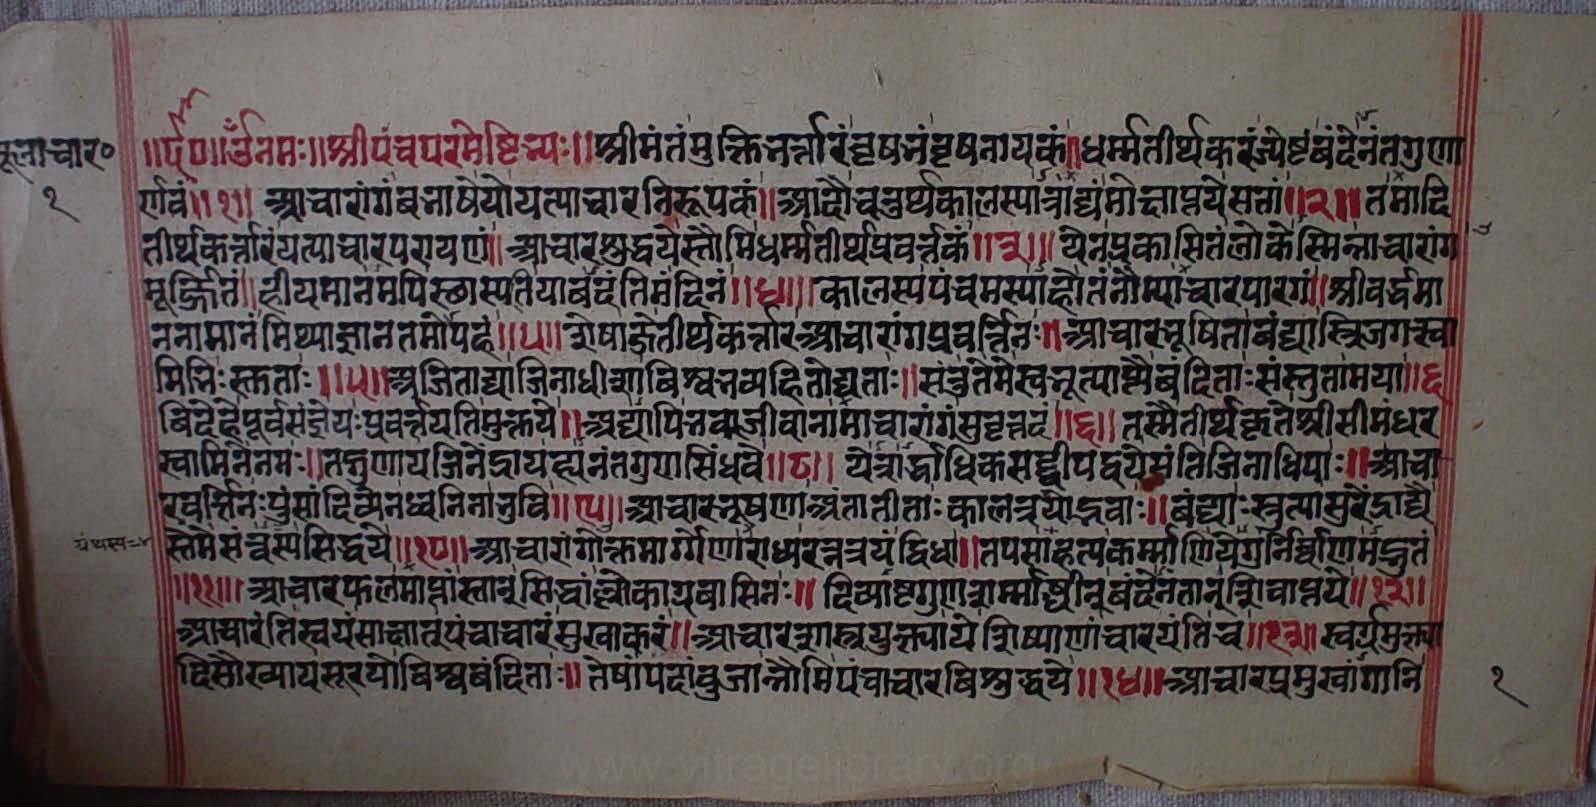 मूलाचार०
१
॥र्ए०॥ ॐ नमः॥ श्रीपंचपरमेष्टिभ्यः॥ श्रीमंतं मुक्तिभर्त्तारं वृषभं वृषनायकं॥ धर्म्मतीर्थकरं ज्येष्टं बंदेनंतगुणा
र्णवं॥१॥ आचारांगं बभाषे यो यत्याचारनिरूपकं॥ आदौ चतुर्थकालस्यात्राद्यं मोक्षाप्तये सतां॥२॥ तमादि
तीर्थकर्त्तारं यत्याचारपरायणं॥ आचारशुद्धये स्तौमि धर्म्मतीर्थप्रवर्त्तकं॥३॥ येन प्रकासितं लोकेस्मिन्नाचारांग
मूर्ज्जितं॥ हीयमानमपि स्छास्यति यावदंतिमं दिनं॥४॥ कालस्य पंचमस्याहो तं नौम्याचारपारगं॥ श्रीवर्द्धमा
ननामानं मिथ्याज्ञानतमोपहं॥५॥ शेषा जे तीर्थकर्त्तार आचारांगप्रवर्त्तिनः॥ आचारभूषिता बंद्यास्त्रिजगत्स्वा
मिभिः स्तुताः॥५॥ अजिताद्या जिनाधीशा बिश्वभव्यहितोद्यताः॥ संतु ते मे स्वभूत्याप्त्यै बंदिताः संस्तुता मया॥६
बिदेहे पूर्वसंज्ञे यः प्रवर्त्तयति मुक्तये॥ अद्यापि भव्यजीवानामाचारांगं सुवृत्तदं॥६॥ तस्मै तीर्थकृते श्रीसीमंधर
स्वामिने नमः॥ तद्गुणाय जिनेंद्राय ह्यनंतगुणसिंधवे॥८॥ येत्रार्द्धाधिकसद्द्वीपद्वये संति जिनाधिपाः॥ आचा
रवर्त्तिनः पुंसां दिव्येन ध्वनिना भुवि॥९॥ आचारभूषणा अंतातीताः कालत्रयोद्भवाः॥ बंद्याः स्तुत्या सुरेंद्राद्यै
स्ते मे संत्वस्य सिद्धये॥१०॥ आचारांगोक्तमार्गेणाराध्य रत्नत्रयं द्विधा॥ तपसा हत्य कर्म्माणि येगुर्निर्ब्बाणमद्भुतं
॥११॥ आचारफलमाप्तांस्तान् सिद्धांल्लोकाग्रबासिनः॥ दिव्याष्टगुणशर्म्माब्धीन् बंदेनंतान् शिवाप्तये॥१२॥
आचारंति स्वयं साक्षात् पंचाचारं सुखाकरं॥ आचारशास्त्रयुक्त्या ये शिष्याणां चारयंति च॥१३॥ स्वर्गमुक्त्या
दिसौख्याय सूरयो बिश्वबंदिताः॥ तेषां पदांबुजान्नौमि पंचाचारबिशुद्धये॥१४॥ आचारप्रमुखांगानि
१
www.vitragelibrary.org